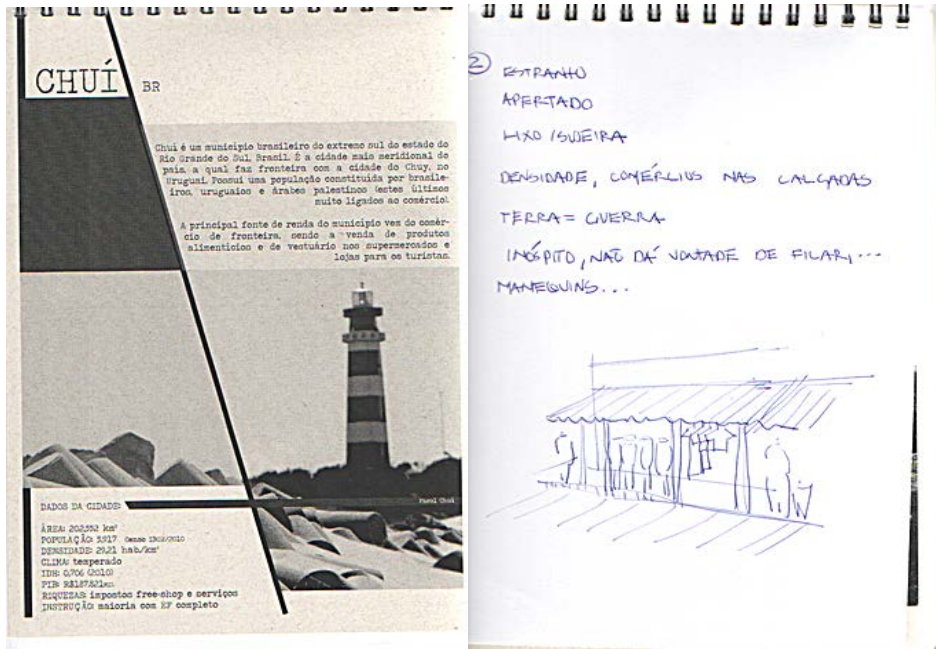 CHUÍ
BR
Chuí é um município brasileiro do extremo sul do estado do
Rio Grande do Sul, Brasil. É a cidade mais meridional do
país, a qual faz fronteira com a cidade do Chuy, no
Uruguai. Possui uma população constituída por brasile-
iros, uruguaios e árabes palestinos (estes últimos
muito ligados ao comércio).
A principal fonte de renda do município vem do comér-
cio de fronteira, sendo a venda de produtos
alimentícios e de vestuário nos supermercados e
lojas para os turistas.
Farol Chuí
DADOS DA CIDADE:
ÁREA: 202,552 km²
POPULAÇÃO: 5.917 Censo IBGE/2010
DENSIDADE: 29,21 hab/km²
CLIMA: temperado
IDH: 0,706 (2010)
PIB: R$187.821
RIQUEZAS: impostos free-shop e serviços
INSTRUÇÃO: maioria com EF completo
2
ESTRANHO
APERTADO
LIXO /SUJEIRA
DENSIDADE, COMÉRCIOS NAS CALÇADAS
TERRA = GUERRA
INÓSPITO, NÃO DÁ VONTADE DE FICAR, ...
MANEQUINS...